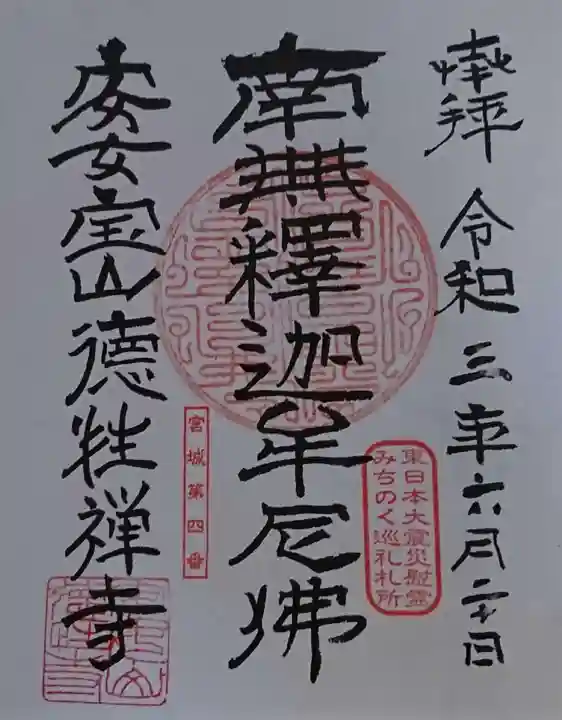 拝 令和三年六月二十日
東日本大震災慰霊
みちのく巡礼札所
南無釋迦牟尼佛
宮城第四番
宝山徳性禅寺